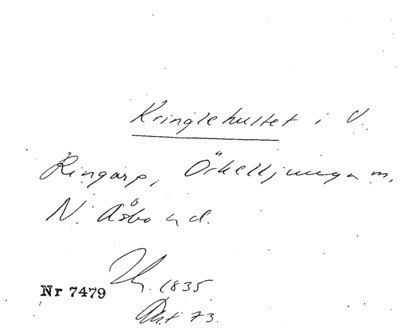 Kringlehultet i V.
Ringarp, Örkelljunga m.
N. Åsbo hd.
1835
Nr 7479
Akt 73.